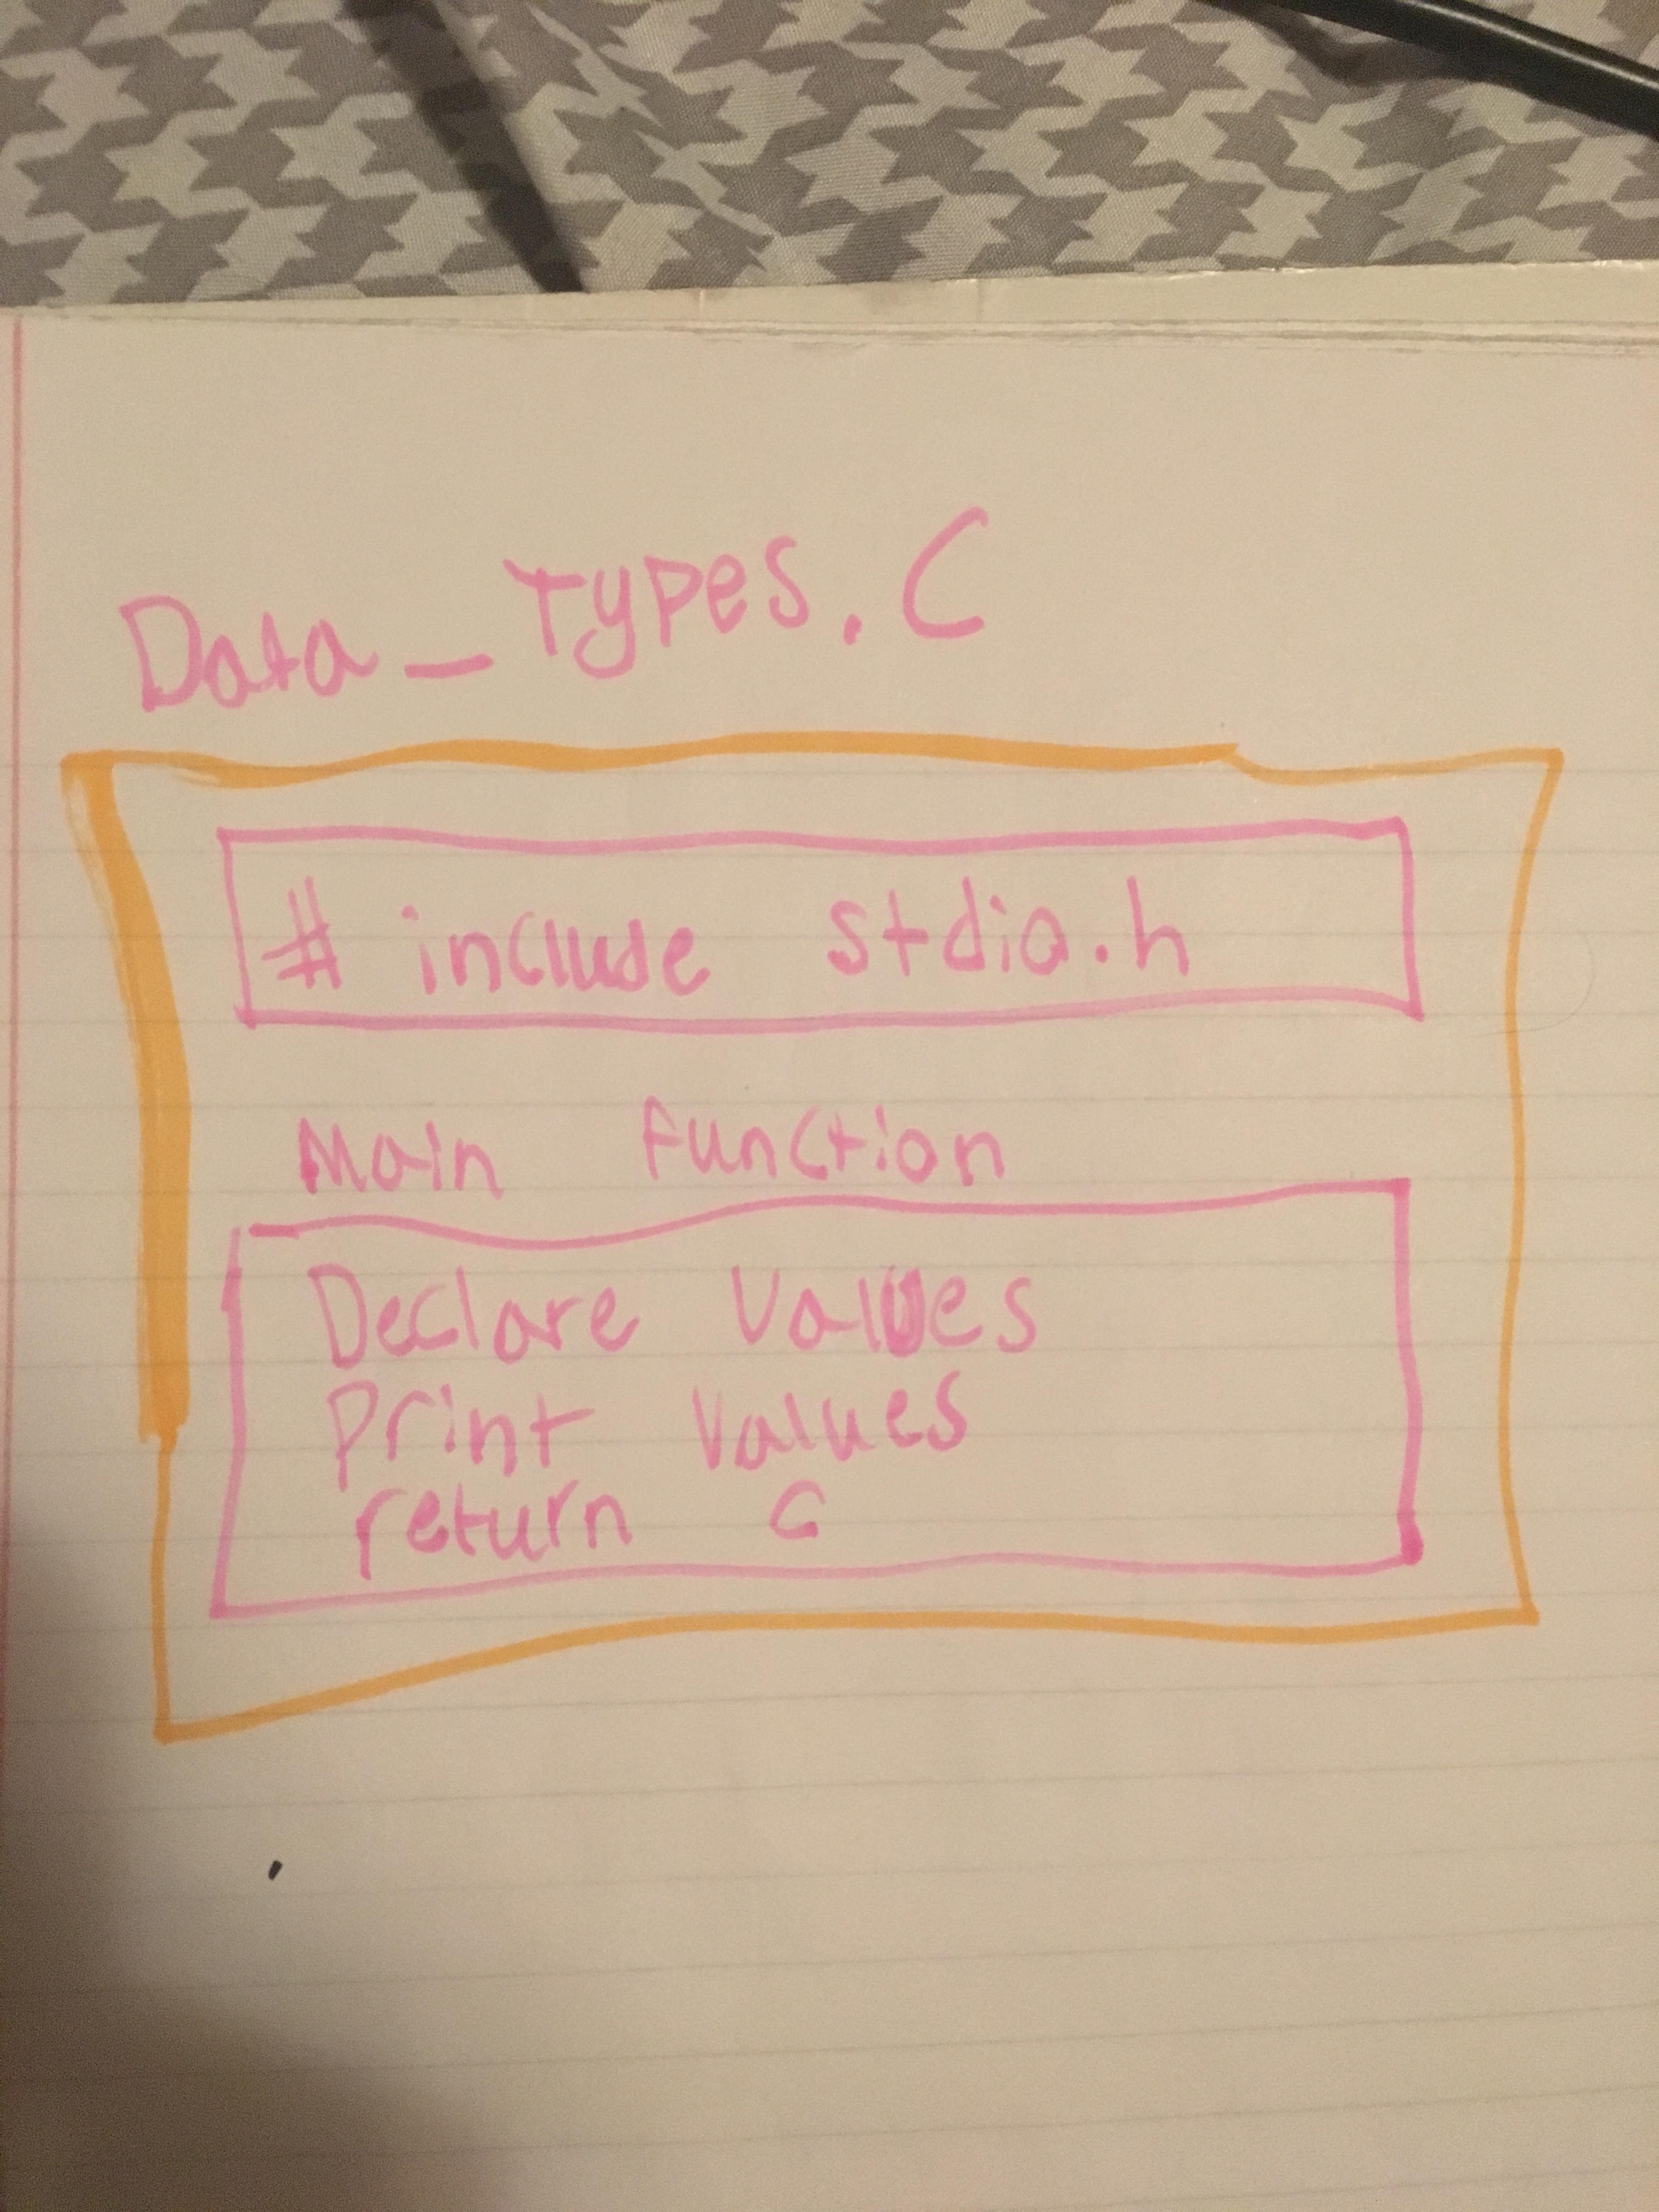 Data_Types.C
# include stdio.h
Main Function
Declare Values
Print Values
return c